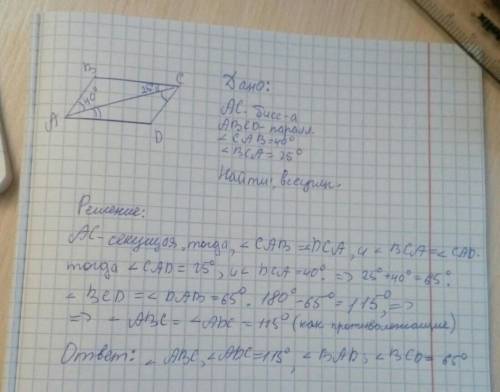 B
C
40°
25°
A
D
Дано:
AC - бисс-а
ABCD - паралл.
∠CAB=40°
∠BCA=25°
Найти: все углы.
Решение:
AC - секущая, тогда, ∠CAB=∠DCA, и ∠BCA=∠CAD.
тогда ∠CAD=25°, и ∠DCA=40° => 25°+40°=65°.
∠BCD=∠DAB=65°. 180°-65°=115°, =>
=> ∠ABC=∠ADC=115° (как противолежащие)
Ответ: ∠ABC, ∠ADC=115°, ∠BAD, ∠BCD=65°